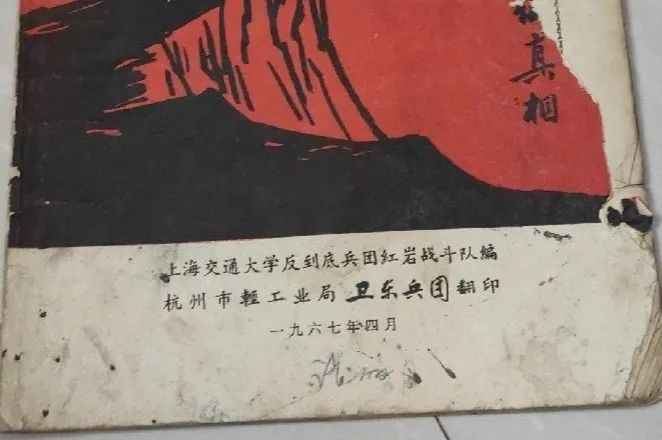 真相
上海交通大学反到底兵团红岩战斗队編
杭州市輕工业局卫东兵团翻印
一九六七年四月